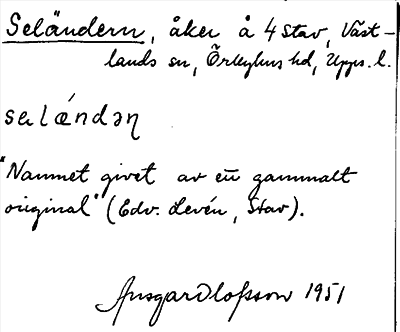 Seländern, åker å 4 Stav, Väst-
lands sn, Örbyhus hd, Upps. l.
selǽndəɳ
"Namnet givet av ett gammalt
original" (Edv. Levén, Stav).
Ansgar Olofsson 1951